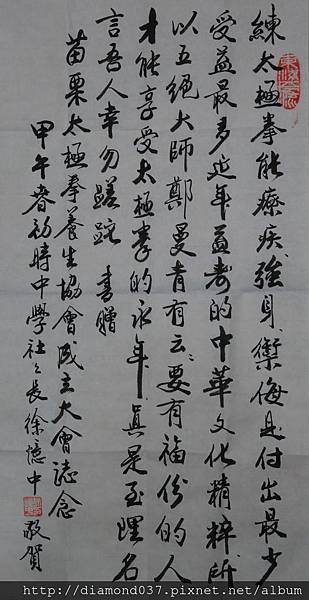 練太極拳能療疾強身禦侮是付出最少
受益最多延年益壽的中華文化精粹所
以五絕大師鄭曼青有云要有福份的人
才能享受太極拳的永年真是至理名
言吾人幸勿蹉跎 書贈
苗栗太極拳養生協會成立大會誌念
甲午春初時中學社社長徐憶中 敬賀
http://diamond037.pixnet.net/album